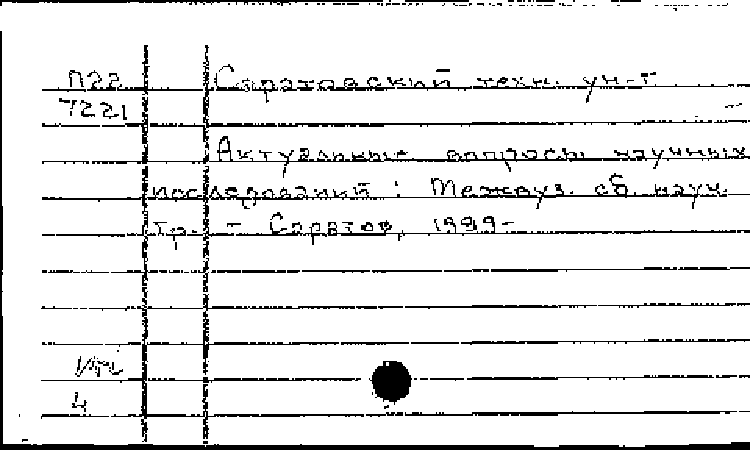 П22 Саратовский техн. ун-т
7221
Актуальные вопросы научных
исследований : Межвуз. сб. науч.
тр. - Саратов, 1999-
4